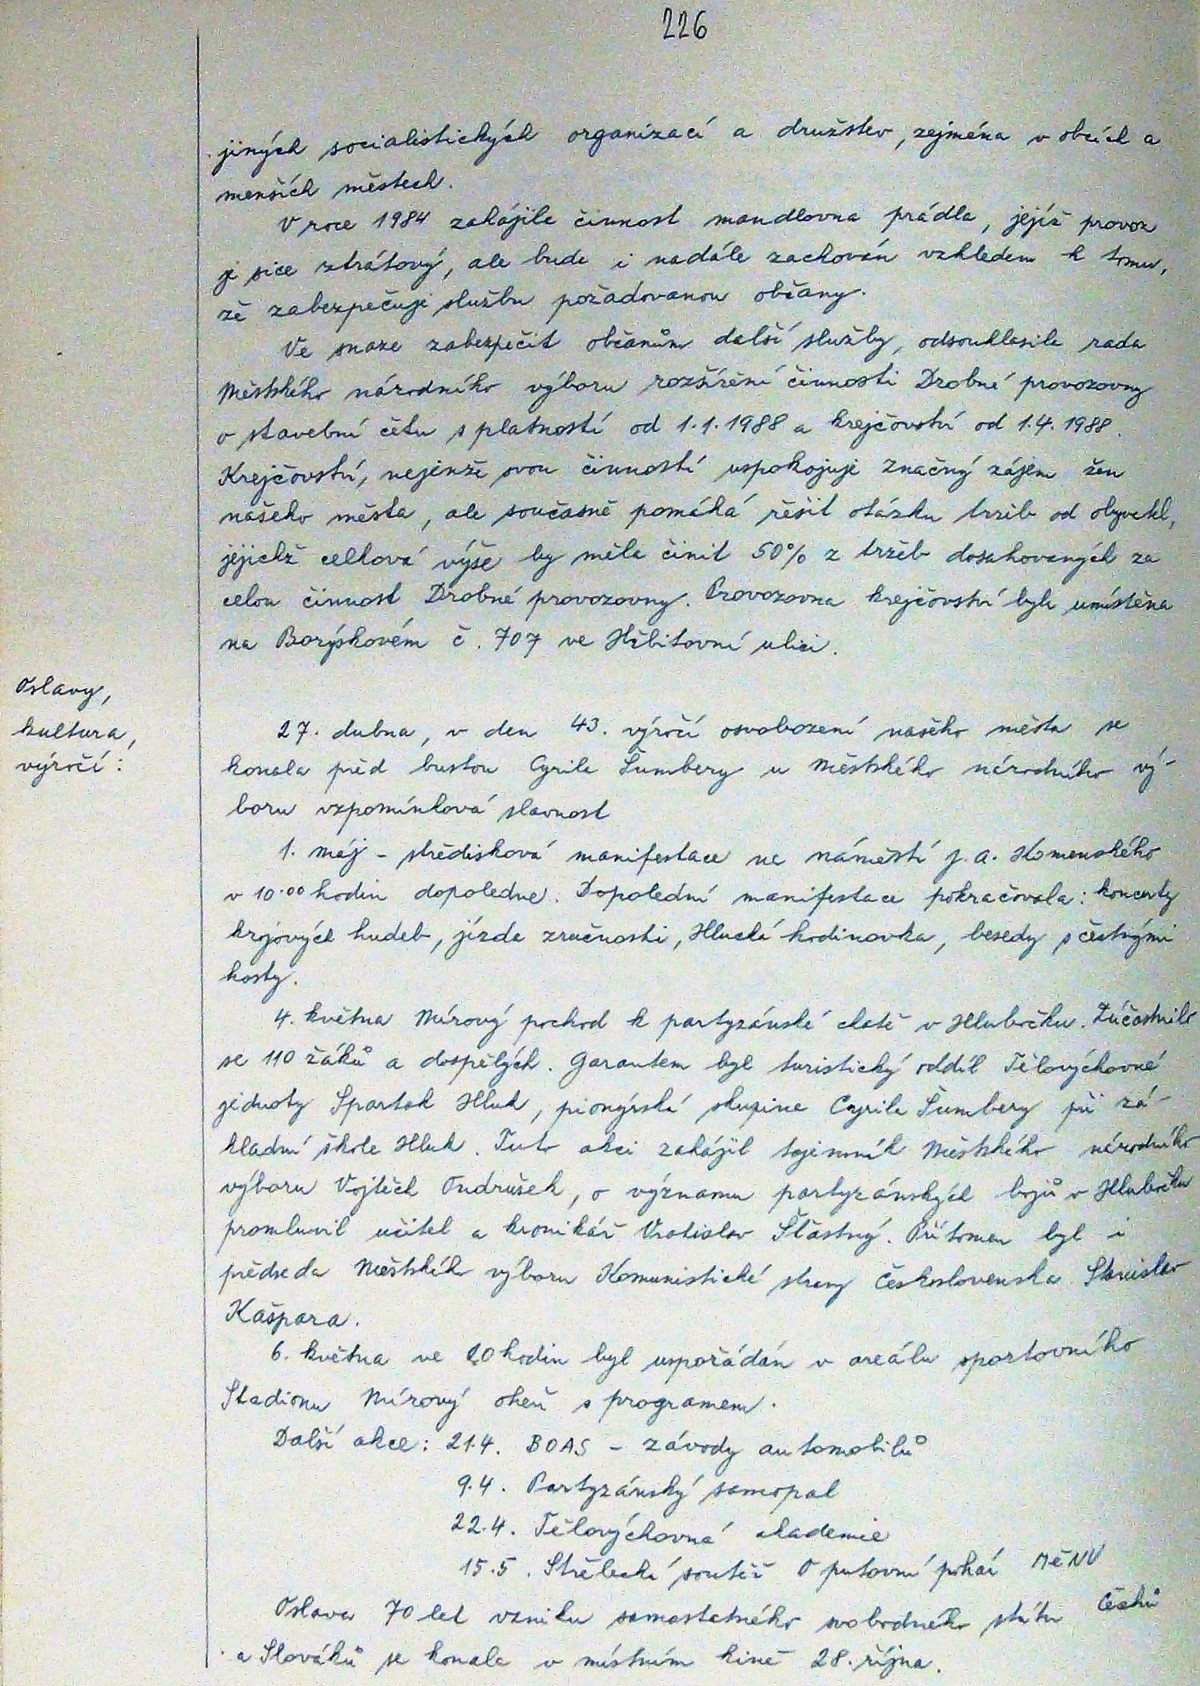 226
jiných socialistických organizací a družstev, zejména v obcích a
menších městech.
V roce 1984 zahájila činnost mandlovna prádla, jejíž provoz
je sice ztrátový, ale bude i nadále zachován vzhledem k tomu,
že zabezpečuje službu požadovanou občany.
Ve snaze zabezpečit občanům další služby, odsouhlasila rada
Městského národního výboru rozšíření činnosti Drobné provozovny
o stavební četu s platností od 1.1.1988 a krejčovství od 1.4.1988.
Krejčovství, nejenže svou činností uspokojuje značný zájem žen
našeho města, ale současně pomáhá řešit otázku tržeb od obyvatel,
jejichž celková výše by měla činit 50% z tržeb dosahovaných za
celou činnost Drobné provozovny. Provozovna krejčovství byla umístěna
na Borýskovém č. 707 ve Hřbitovní ulici.
Oslavy,
kultura,
výročí:
27. dubna, v den 43. výročí osvobození našeho města se
konala před bustou Cyrila Šumbery u Městského národního vý-
boru vzpomínková slavnost
1. máj - středisková manifestace na náměstí J. A. Komenského
v 10.00 hodin dopoledne. Dopolední manifestace pokračovala: koncerty
krojových hudeb, jízda zručnosti, Hlucká hodinovka, besedy s čestnými
hosty.
4. května Mírový pochod k partyzánské chatě v Hlubočku. Zúčastnilo
se 110 žáků a dospělých. Garantem byl turistický oddíl Tělovýchovné
jednoty Spartak Hluk, pionýrská skupina Cyrila Šumbery při zá-
kladní škole Hluk. Tuto akci zahájil tajemník Městského národního
výboru Vojtěch Ondrůšek, o významu partyzánských bojů v Hlubočku
promluvil učitel a kronikář Vratislav Šťastný. Přítomen byl i
předseda Městského výboru Komunistické strany Československa Stanislav
Kašpara.
6. května ve 20 hodin byl uspořádán v areálu sportovního
Stadionu Mírový oheň s programem.
Další akce: 21.4. BOAS - závody automobilů
9.4. Partyzánský samopal
22.4. Tělovýchovná akademie
15.5. Střelecká soutěž O putovní pohár MěNV
Oslava 70 let vzniku samostatného svobodného státu Čechů
a Slováků se konala v místním kině 28. října.